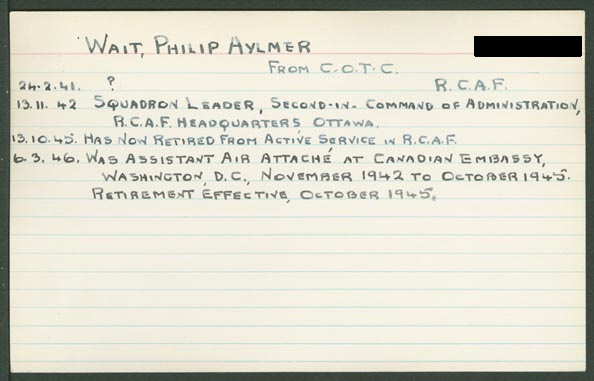 WAIT, PHILIP AYLMER
FROM C.O.T.C.
24.2.41. ? R.C.A.F.
13.11.42 SQUADRON LEADER, SECOND-IN-COMMAND OF ADMINISTRATION,
R.C.A.F. HEADQUARTERS OTTAWA.
13.10.45. HAS NOW RETIRED FROM ACTIVE SERVICE IN R.C.A.F.
6.3.46. WAS ASSISTANT AIR ATTACHÉ AT CANADIAN EMBASSY,
WASHINGTON, D.C., NOVEMBER 1942 TO OCTOBER 1945.
RETIREMENT EFFECTIVE, OCTOBER 1945.